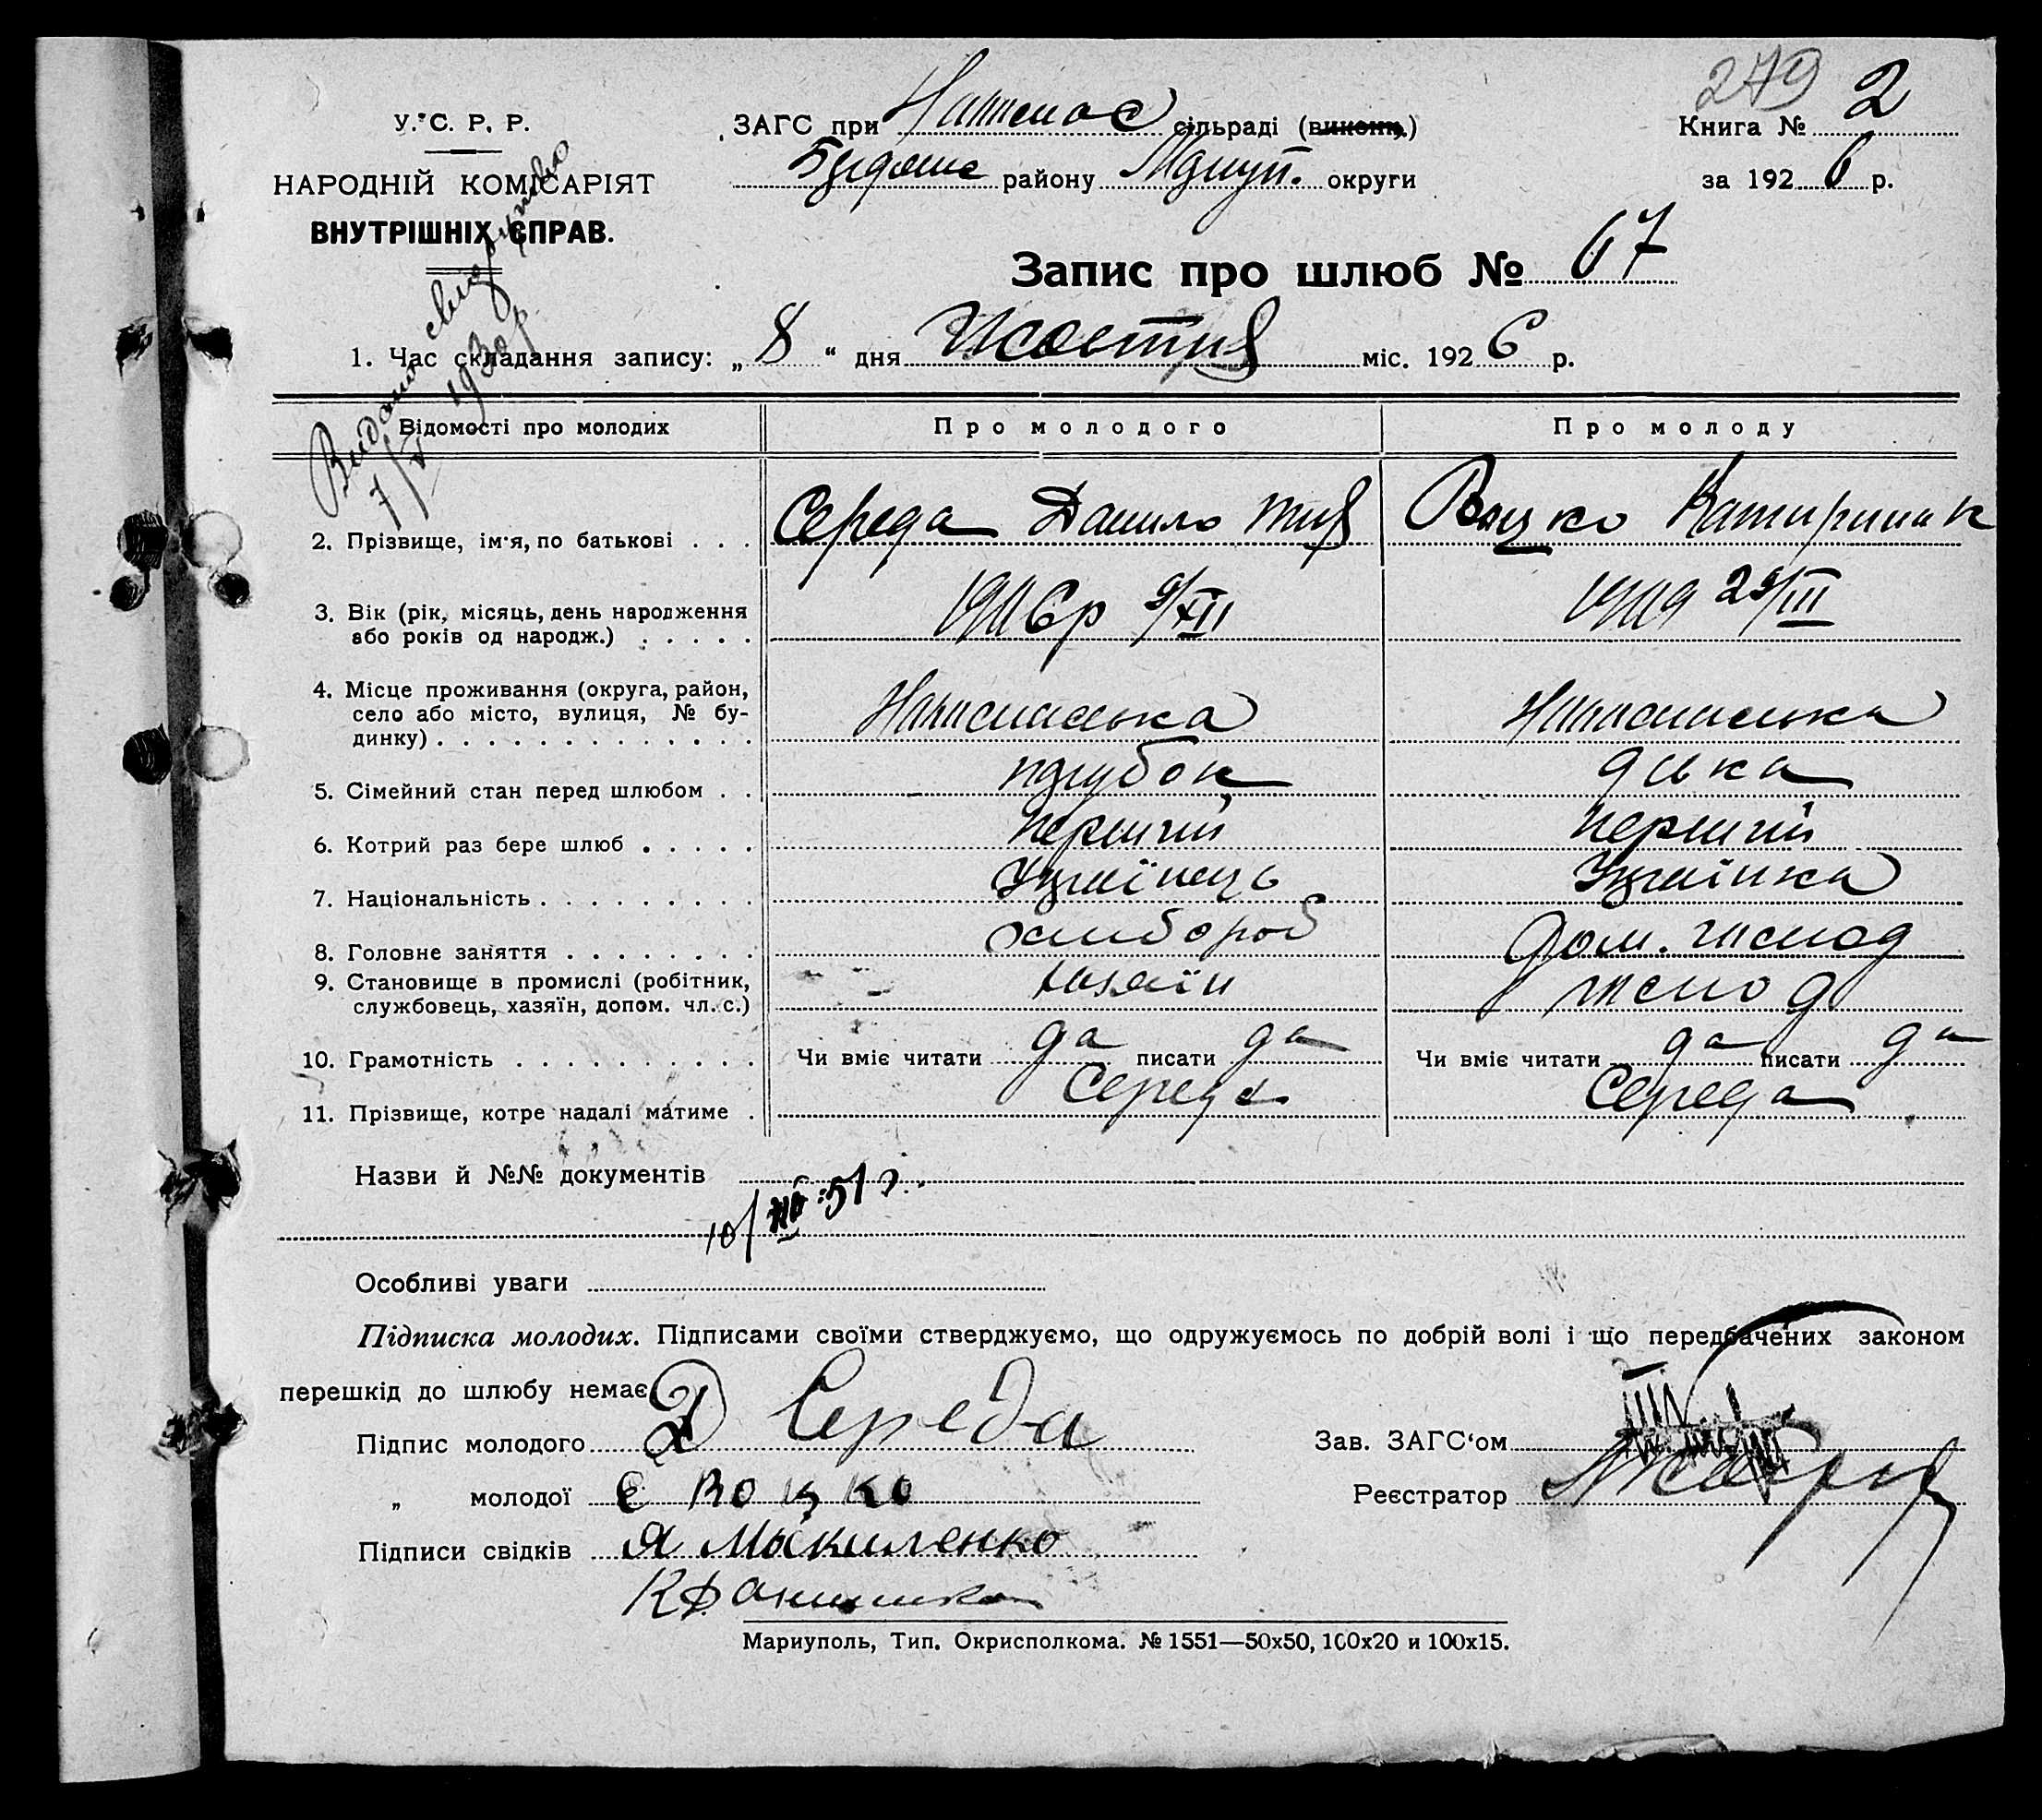 279
У.С.Р.Р.
НАРОДНІЙ КОМІСАРІЯТ
ВНУТРІШНІХ СПРАВ.
Видано свідоцтво
7/V 1930 р.
ЗАГС при сільраді (викон.)
району Маріуп. округи
Книга № 2
за 1926 р.
Запис про шлюб № 67
1. Час складання запису: „8“ дня Жовтня міс. 1926 р.
Відомості про молодих Про молодого Про молоду
2. Прізвище, ім'я, по батькові . . . Середа Данило Воцко Катирина К
3. Вік (рік, місяць, день народження
або років од народж.) . . . . . 1906р 9/XII 1909 29/III
4. Місце проживання (округа, район,
село або місто, вулиця, № бу-
динку) . . . . . . . . . . . . .
5. Сімейний стан перед шлюбом . . парубок дівка
6. Котрий раз бере шлюб . . . . . перший перший
7. Національність . . . . . . . . . Українець Українка
8. Головне заняття . . . . . . . . хлибороб Дом.
9. Становище в промислі (робітник,
службовець, хазяїн, допом. чл. с.) хазяїн
10. Грамотність . . . . . . . . . . Чи вміє читати да писати да Чи вміє читати да писати да
11. Прізвище, котре надалі матиме . Середа Середа
Назви й №№ документів
10/ 51 г.
Особливі уваги
Підписка молодих. Підписами своїми стверджуємо, що одружуємось по добрій волі і що передбачених законом
перешкід до шлюбу немає
Підпис молодого Д Середа Зав. ЗАГС'ом
„ молодої Є Воцко Реєстратор
Підписи свідків Я
К
Мариуполь, Тип. Окрисполкома. № 1551—50х50, 100х20 и 100х15.